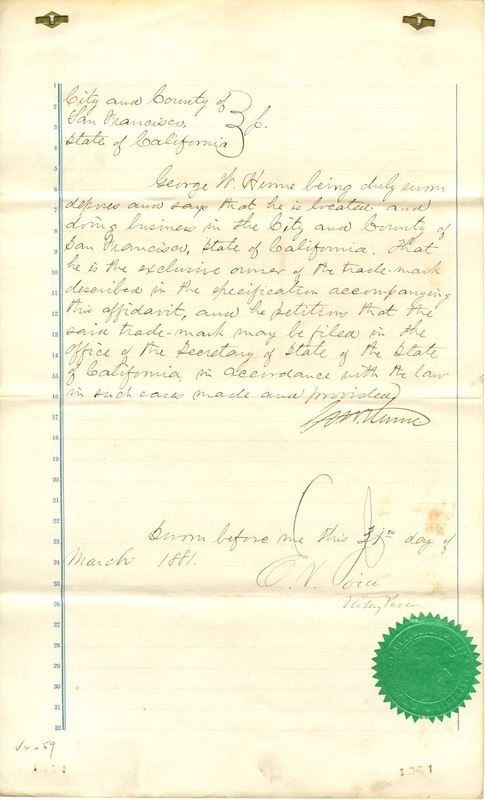 City and County of
San Francisco,
State of California
George W. Hume being duly sworn
deposes and says that he is located and
doing business in the City and County of
San Francisco, State of California. That
he is the exclusive owner of the trade-mark
described in the specification accompanying
this affidavit, and he petitions that the
said trade-mark may be filed in the
office of the Secretary of State of the State
of California in accordance with the law
in such cases made and provided
G. W. Hume
Sworn before me this 31st day of
March 1881.
Notary Public
1
2
3
4
5
6
7
8
9
10
11
12
13
14
15
16
17
18
19
20
21
22
23
24
25
26
27
28
29
30
31
32